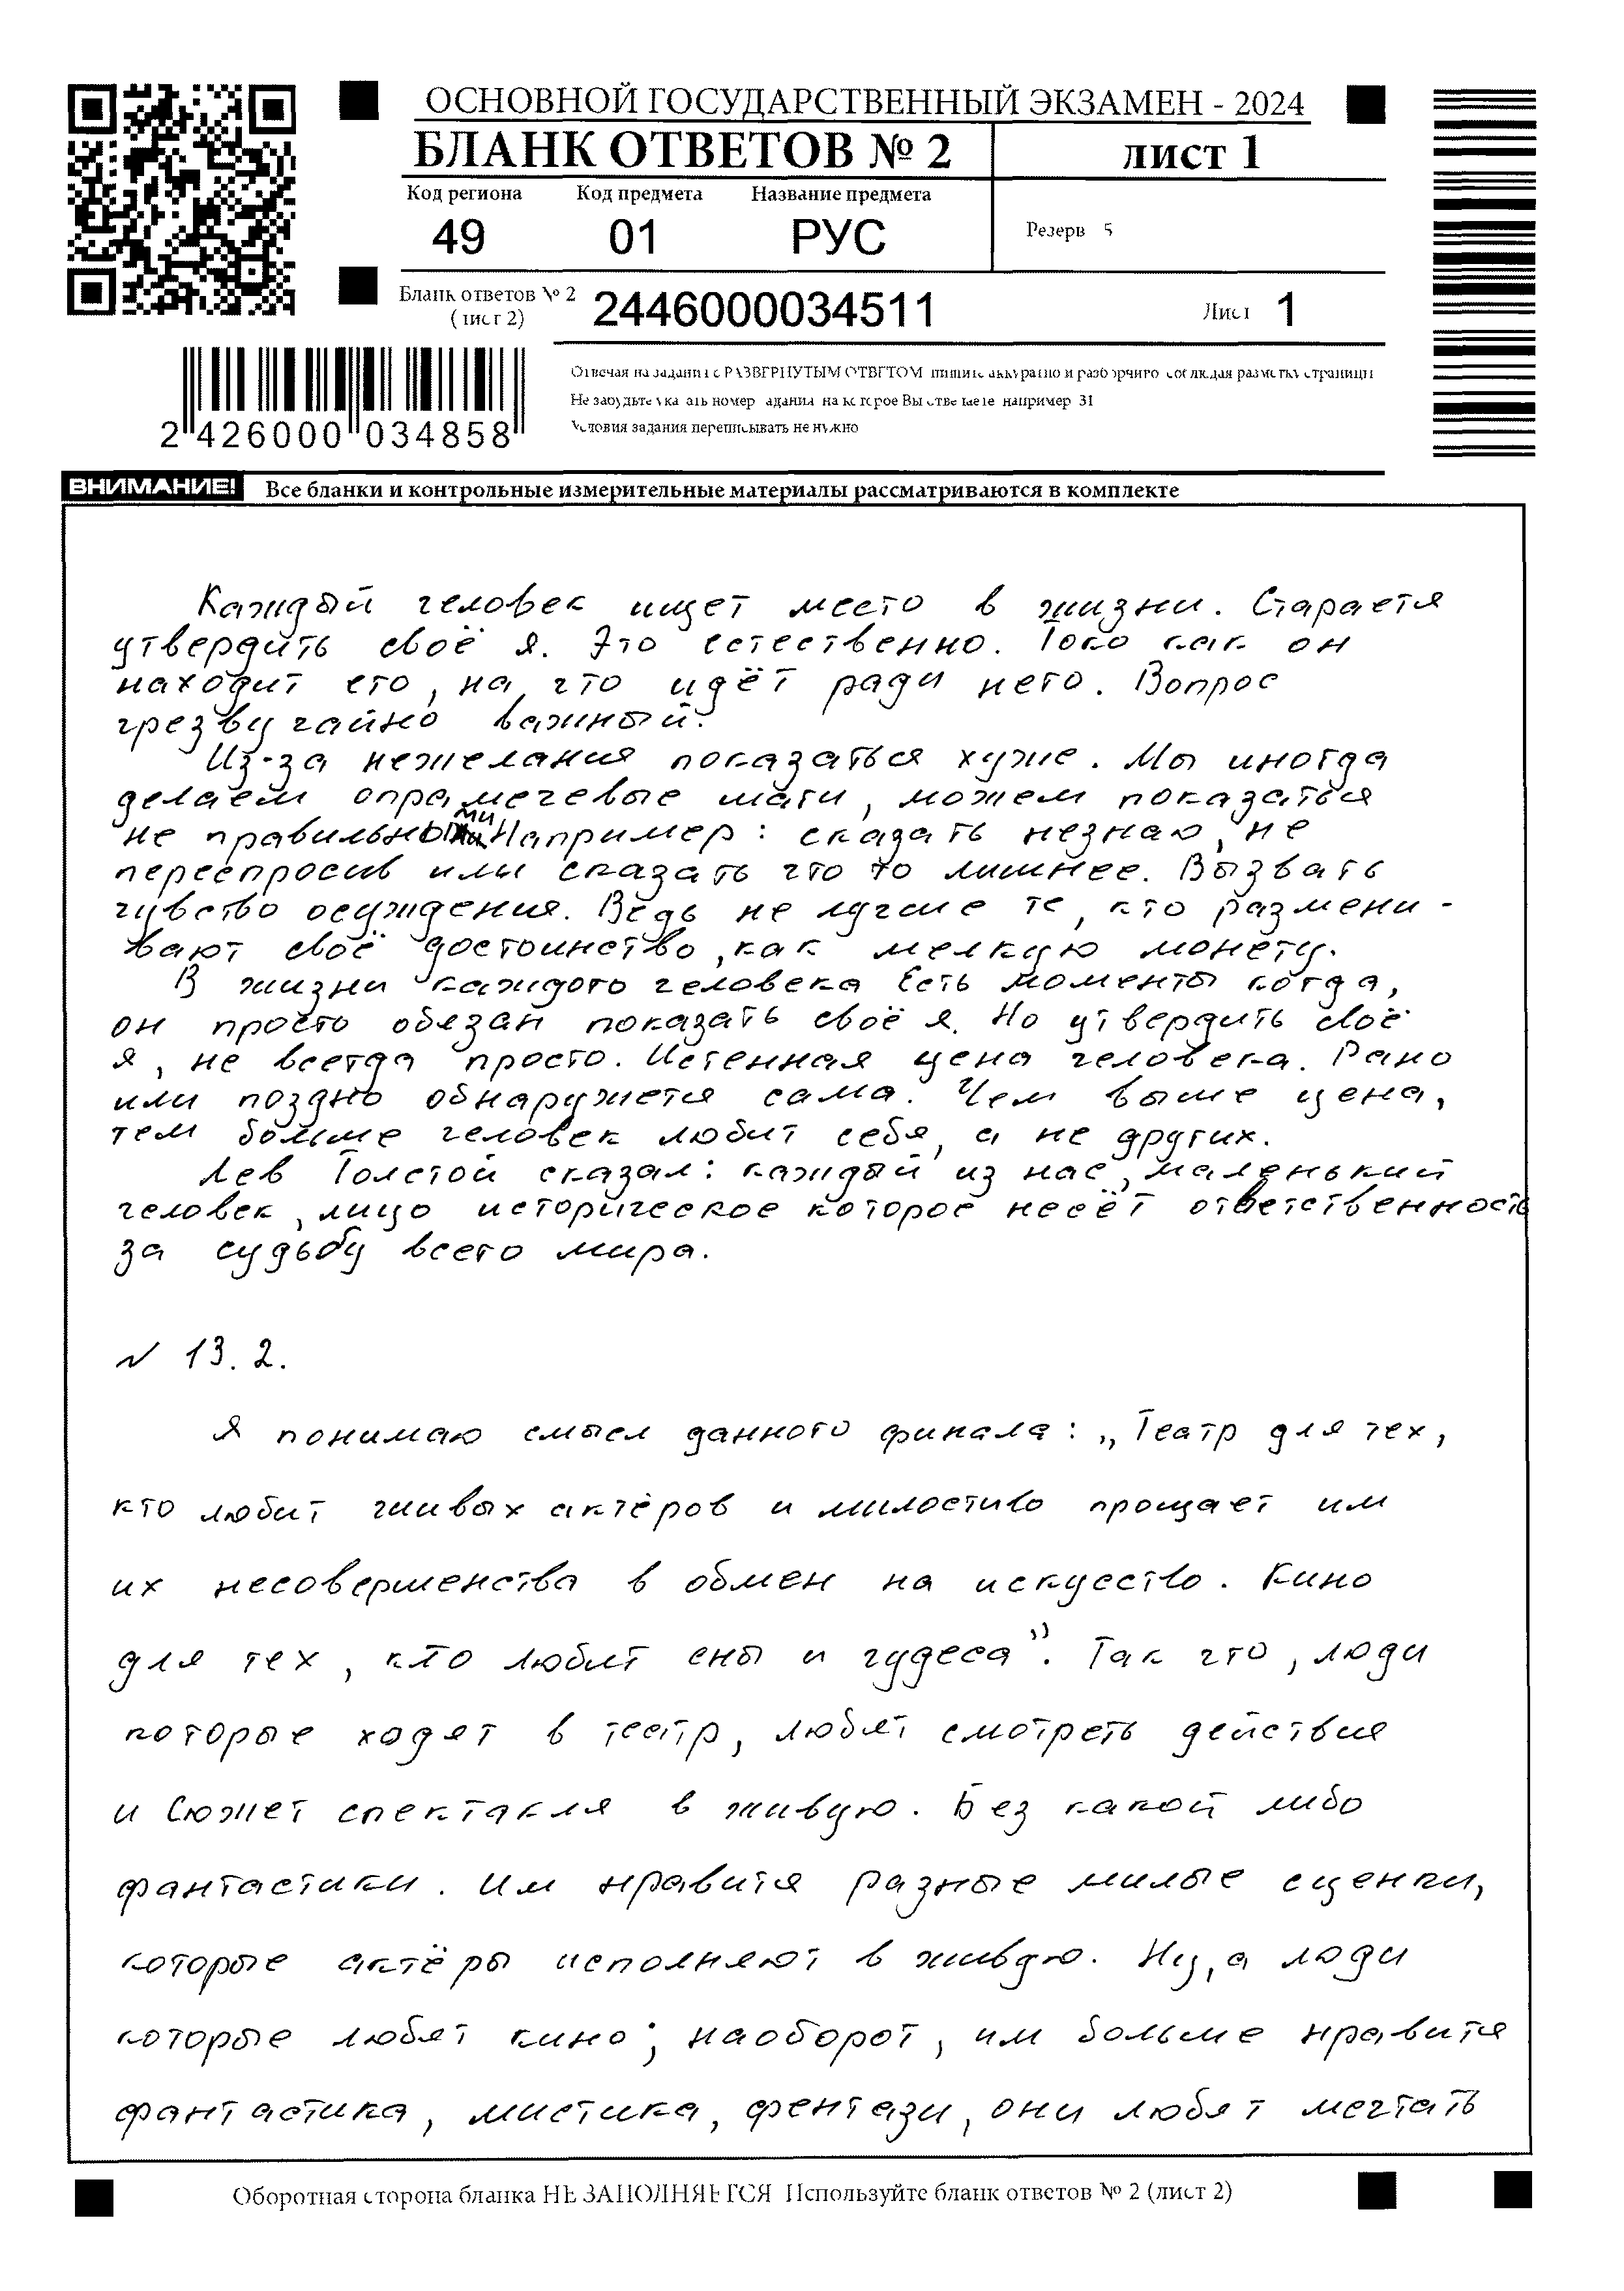 ОСНОВНОЙ ГОСУДАРСТВЕННЫЙ ЭКЗАМЕН - 2024
БЛАНК ОТВЕТОВ № 2
ЛИСТ 1
Код региона Код предмета Название предмета
49 01 РУС
Резерв 5
Бланк ответов № 2
(лист 2)
2446000034511
Лист 1
2 426000 034858
Отвечая на задания с РАЗВЕРНУТЫМ ОТВЕТОМ пишите аккуратно и разборчиво соблюдая разметку страницы
Не забудьте указать номер задания на которое Вы отвечаете например 31
Условия задания переписывать не нужно
ВНИМАНИЕ! Все бланки и контрольные измерительные материалы рассматриваются в комплекте
Каждый человек ищет место в жизни. Старается
утвердить своё я. Это естественно. Токо как он
находит его, на что идёт ради него. Вопрос
черезвучайно важный.
Из-за нежелания показаться хуже. Мы иногда
делаем опрамечевые шаги, можем показаться
не правильными Например: сказать незнаю, не
переспросив или сказать что то лишнее. Вызвать
чувство осуждения. Ведь не лучше те, кто размени-
вают своё достоинство, как мелкую монету.
В жизни каждого человека Есть моменты когда,
он просто обязан показать своё я. Но утвердить своё
я, не всегда просто. Истенная цена человека. Рано
или поздно обнаружется сама. Чем выше цена,
тем больше человек любит себя, а не других.
Лев Толстой сказал: каждый из нас, маленький
человек, лицо историческое которое несёт ответственность
за судьбу всего мира.
N 13.2.
Я понимаю смысл данного финала: „Театр для тех,
кто любит живых актёров и милостиво прощает им
их несовершенства в обмен на искусство. Кино
для тех, кто любит сны и чудеса". Так что, люди
которые ходят в театр, любят смотреть действия
и Сюжет спектакля в живую. Без какой либо
фантастики. Им нравится разные милые сценки,
которые актёры исполняют в живую. Ну, а люди
которые любят кино; наоборот, им больше нравится
фантастика, мистика, фентази, они любят мечтать
Оборотная сторона бланка НЕ ЗАПОЛНЯЕТСЯ Используйте бланк ответов № 2 (лист 2)